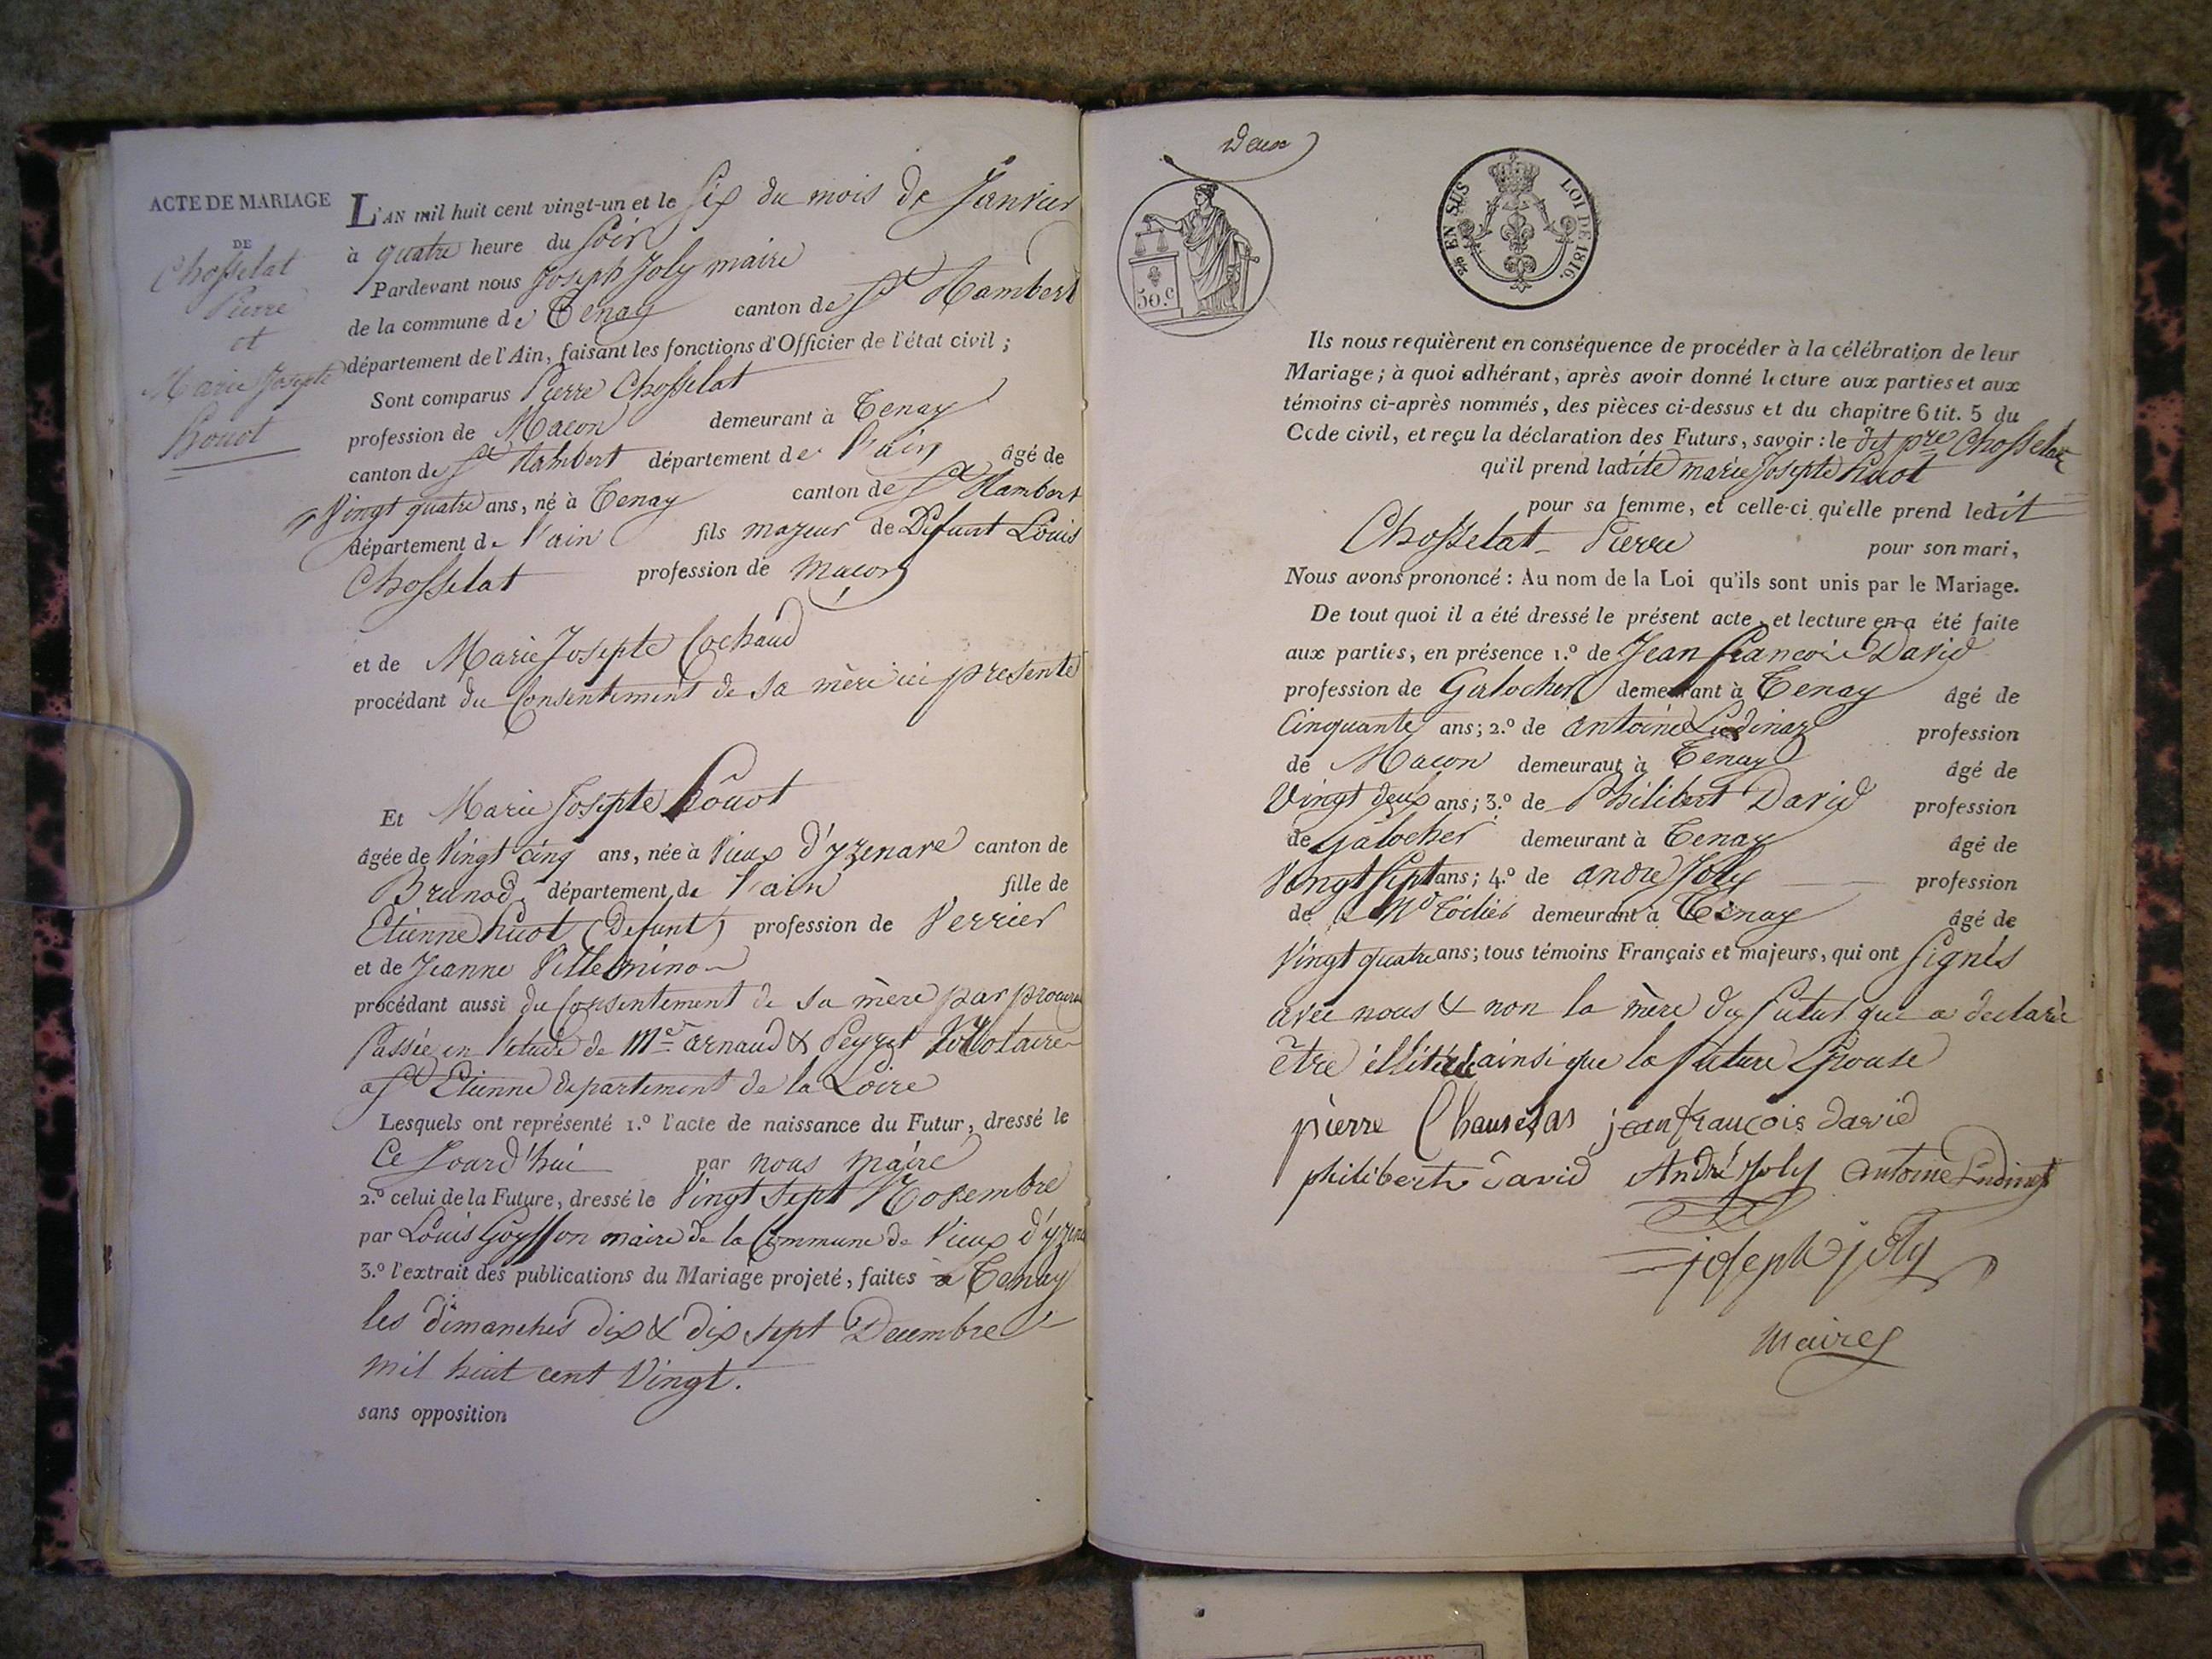 ACTE DE MARIAGE
DE
Chosselat
Pierre
et
Marie Josephte
huot
L'AN mil huit cent vingt-un et le Six du mois de Janvier
à quatre heure du Soir
Pardevant nous Joseph Joly maire
de la commune de Tenay canton de St Rambert
département de l'Ain, faisant les fonctions d'Officier de l'état civil ;
Sont comparus Pierre Chosselat
profession de Macon demeurant à Tenay
canton de St Rambert département de l'ain âgé de
Vingt quatre ans, né à Tenay canton de St Rambert
département de l'ain fils majeur de Defunt Louis
Chosselat profession de Macon
et de Marie Josephte Cochaud
procédant du Consentement de sa mère ici presente
Et Marie Josephte huot
âgée de Vingt cinq ans, née à Vieux d'yzenave canton de
Brunod, département de l'ain fille de
Etienne huot (Defunt) profession de Verrier
et de Jeanne Villeminon
procédant aussi du Consentement de sa mère par
Passée en l'etude de Me arnaud & Peyret Notaire
a St Etienne departement de la Loire
Lesquels ont représenté 1.º l'acte de naissance du Futur, dressé le
Ce Jourd'hui par nous maire
2.º celui de la Future, dressé le Vingt Sept Novembre
par Louis Goysson maire de la Commune de Vieux
3.º l'extrait des publications du Mariage projeté, faites à Tenay
les dimanches dix & dix sept Decembre
mil huit cent Vingt.
sans opposition
Deux
50.c
EN SUS LOI DE 1816.
Ils nous requièrent en conséquence de procéder à la célébration de leur
Mariage; à quoi adhérant, après avoir donné lecture aux parties et aux
témoins ci-après nommés, des pièces ci-dessus et du chapitre 6 tit. 5 du
Code civil, et reçu la déclaration des Futurs, savoir : le dit pre Chosselat
qu'il prend ladite marie Josephte huot
pour sa femme, et celle-ci qu'elle prend ledit
Chosselat Pierre pour son mari,
Nous avons prononcé : Au nom de la Loi qu'ils sont unis par le Mariage.
De tout quoi il a été dressé le présent acte, et lecture en a été faite
aux parties, en présence 1.º de Jean francois David
profession de Galocher demeurant à Tenay âgé de
Cinquante ans ; 2.º de antoine Ludinaz profession
de Macon demeurant à Tenay âgé de
Vingt deux ans ; 3.º de Philibert David profession
de Galocher demeurant à Tenay âgé de
Vingt Sept ans ; 4.º de andre Joly profession
de demeurant à Tenay âgé de
Vingt quatre ans ; tous témoins Français et majeurs, qui ont Signés
avec nous & non la mère du futur qui a declaré
être illitéré ainsi que la future Epouse
pierre Chauselas jean francois david
philibert david André Joly Antoine Ludinaz
joseph joly
Maire